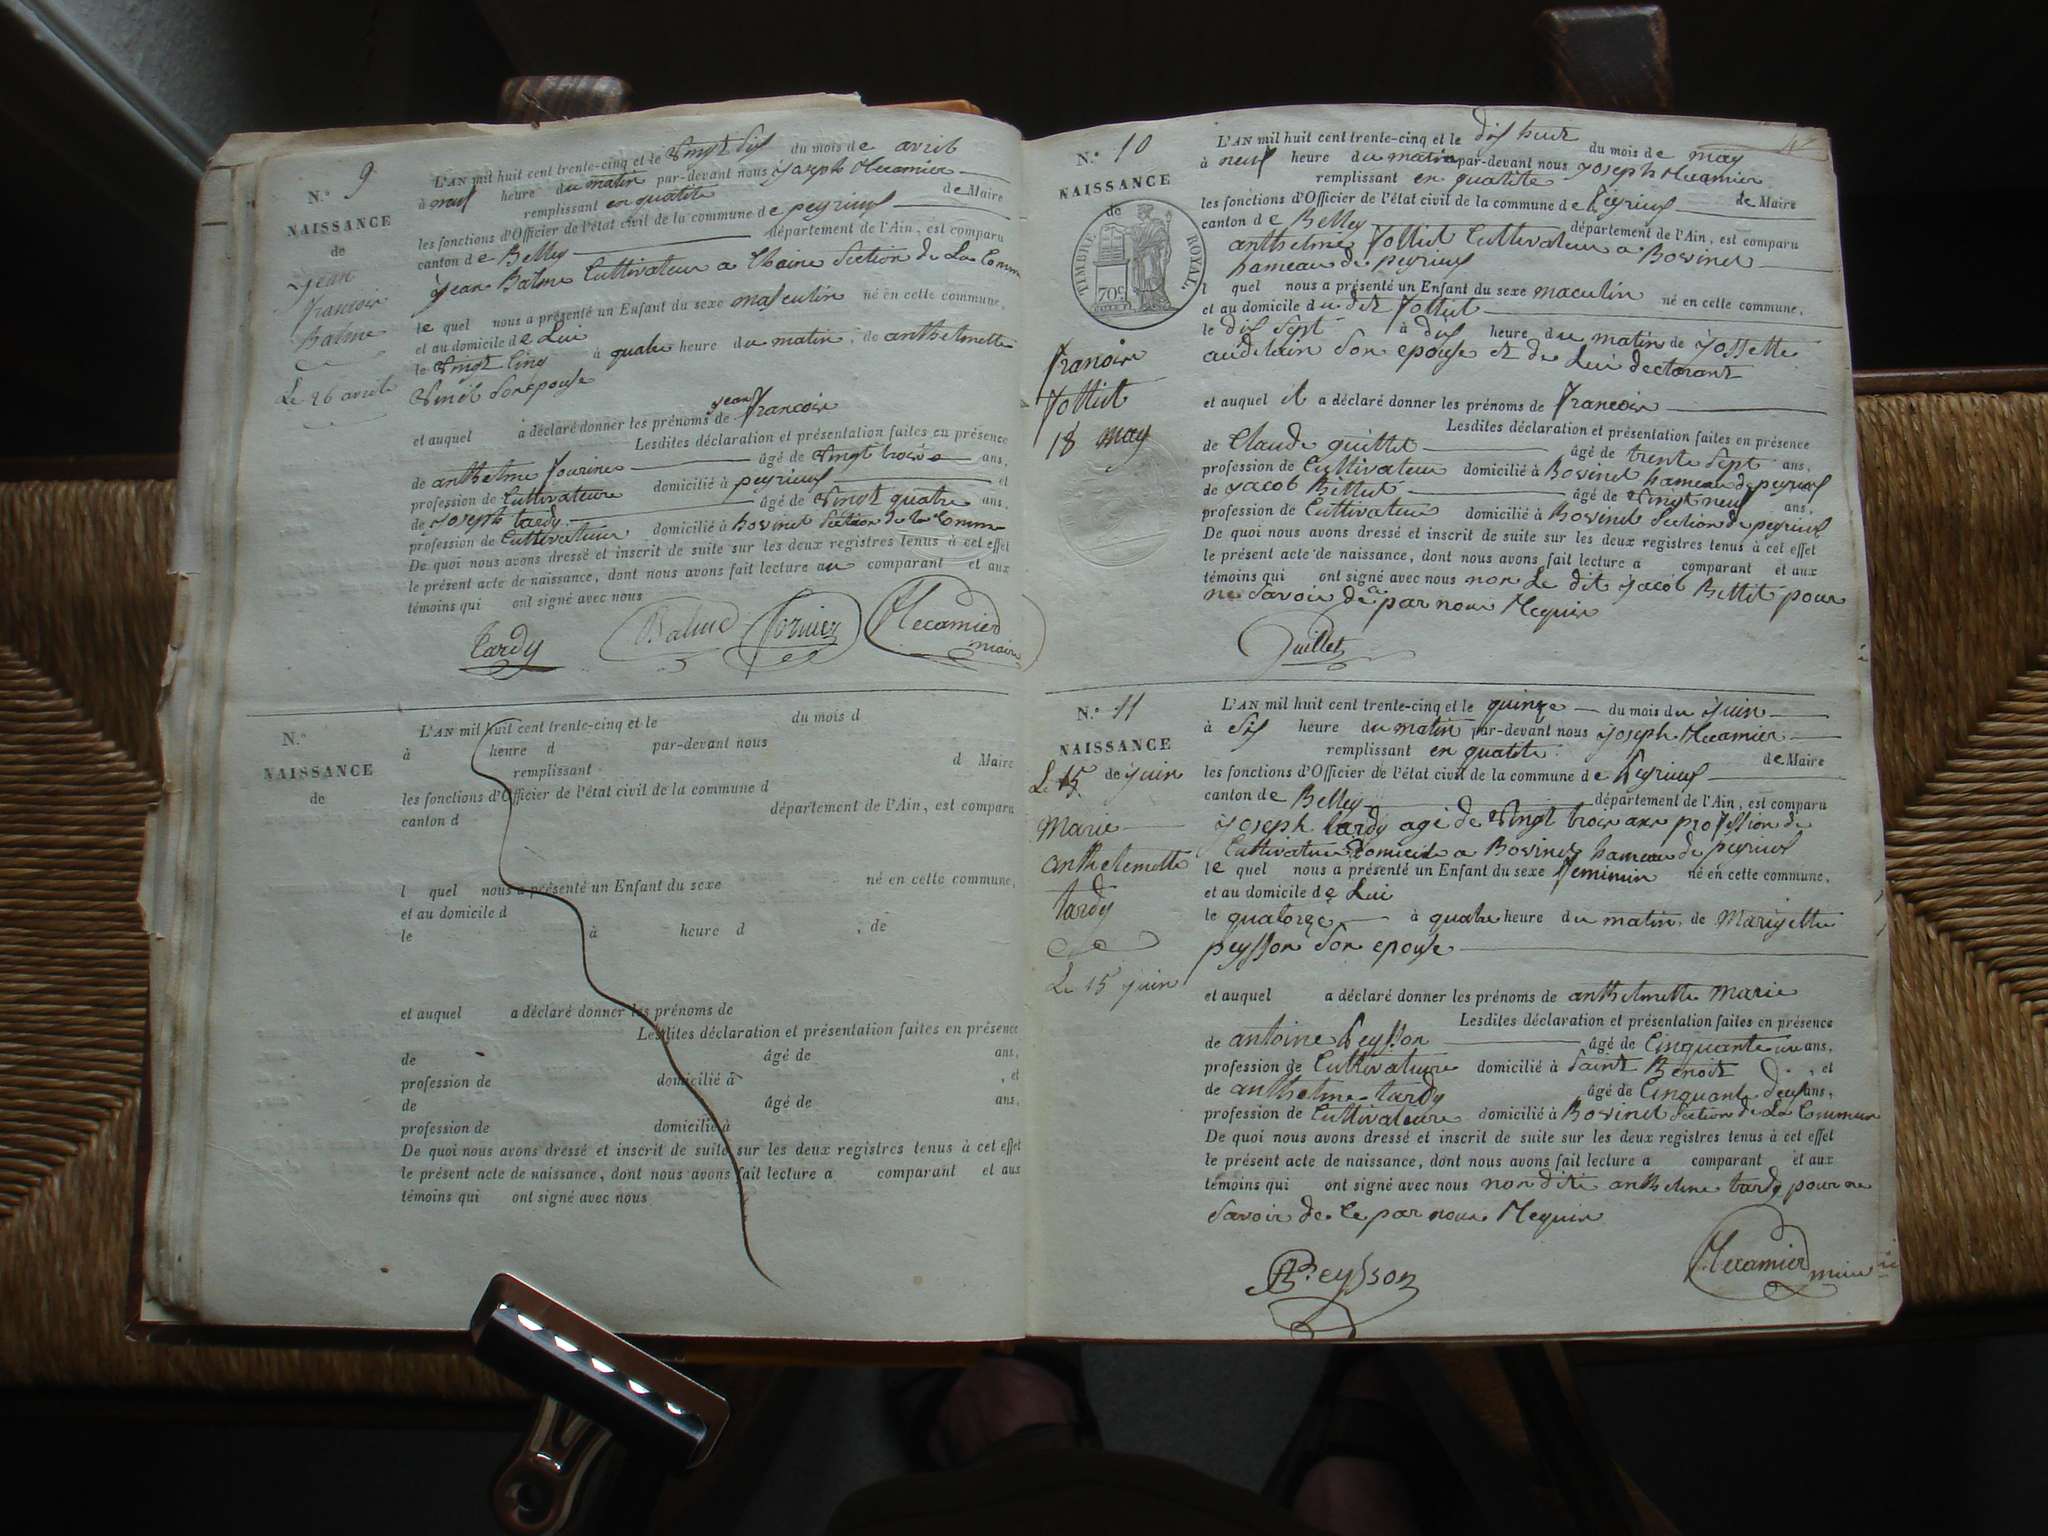 N.° 9
NAISSANCE
de
jean
francois
Balme
Le 26 avril
L'AN mil huit cent trente-cinq et le Vingt Six du mois de avril
à neuf heure du matin par-devant nous joseph Recamier
remplissant en qualité de Maire
les fonctions d'Officier de l'état civil de la commune de peyrieus
canton de Belley département de l'Ain, est comparu
jean Balme Cultivateur a Section de La Comm
le quel nous a présenté un Enfant du sexe masculin né en cette commune,
et au domicile de Lui
le Vingt Cinq à quatre heure du matin, de anthelmette
son epouse
et auquel a déclaré donner les prénoms de jean francois
Lesdites déclaration et présentation faites en présence
de anthelme fournier âgé de Vingt trois ans,
profession de Cultivateure domicilié à peyrieus et
de joseph tardy âgé de Vingt quatre ans,
profession de Cultivateur domicilié à Bovinel Section de la Comm
De quoi nous avons dressé et inscrit de suite sur les deux registres tenus à cet effet
le présent acte de naissance, dont nous avons fait lecture au comparant et aux
témoins qui ont signé avec nous
tardy Balme fornier Recamier
maire
N.°
NAISSANCE
de
L'AN mil huit cent trente-cinq et le du mois d
à heure d par-devant nous
remplissant d Maire
les fonctions d'Officier de l'état civil de la commune d
canton d département de l'Ain, est comparu
l quel nous a présenté un Enfant du sexe né en cette commune,
et au domicile d
le à heure d , de
et auquel a déclaré donner les prénoms de
Lesdites déclaration et présentation faites en présence
de âgé de ans,
profession de domicilié à , et
de âgé de ans,
profession de domicilié à
De quoi nous avons dressé et inscrit de suite sur les deux registres tenus à cet effet
le présent acte de naissance, dont nous avons fait lecture a comparant et aux
témoins qui ont signé avec nous
N.° 10
NAISSANCE
de
TIMBRE ROYAL
70c
francois
jolliet
18 may
L'AN mil huit cent trente-cinq et le dix huit du mois de may
à neuf heure du matin par-devant nous joseph Recamier
remplissant en qualité de Maire
les fonctions d'Officier de l'état civil de la commune de Peyrieus
canton de Belley département de l'Ain, est comparu
anthelme jolliet Cultivateur a Bovinel
hameau de peyrieus
l quel nous a présenté un Enfant du sexe maculin né en cette commune,
et au domicile du dit jolliet
le dix sept à dix heure du matin de jossette
son epouse et de Lui declarant
et auquel il a déclaré donner les prénoms de francois
Lesdites déclaration et présentation faites en présence
de Claude guillet âgé de trente sept ans,
profession de Cultivateur domicilié à Bovinel hameau de peyrieus
de jacob Billiet âgé de Vingt neuf ans,
profession de Cultivateur domicilié à Bovinel Section de peyrieus
De quoi nous avons dressé et inscrit de suite sur les deux registres tenus à cet effet
le présent acte de naissance, dont nous avons fait lecture a comparant et aux
témoins qui ont signé avec nous non Le dit jacob Billiet pour
ne Savoir de ce par nous Requis
Guillet
N.° 11
NAISSANCE
Le 15 de juin
Marie
anthelemette
tardy
Le 15 juin
L'AN mil huit cent trente-cinq et le quinze du mois du juin
à Six heure du matin par-devant nous joseph Recamier
remplissant en qualité de Maire
les fonctions d'Officier de l'état civil de la commune de Peyrieus
canton de Belley département de l'Ain, est comparu
joseph tardy agé de Vingt trois ans profession de
Cultivateur domicile a Bovinel hameau de peyrieus
le quel nous a présenté un Enfant du sexe feminin né en cette commune,
et au domicile de Lui
le quatorze à quatre heure du matin, de
peysson Son epouse
et auquel a déclaré donner les prénoms de anthelmette Marie
Lesdites déclaration et présentation faites en présence
de antoine Peysson âgé de Cinquante un ans,
profession de Cultivateure domicilié à Saint Benoit , et
de anthelme tardy âgé de Cinquante deux ans,
profession de Cultivateure domicilié à Bovinel Section de La Commune
De quoi nous avons dressé et inscrit de suite sur les deux registres tenus à cet effet
le présent acte de naissance, dont nous avons fait lecture a comparant et aux
témoins qui ont signé avec nous non dite anthelme tardy pour ne
Savoir de Ce par nous Requis
Peysson Recamier maire